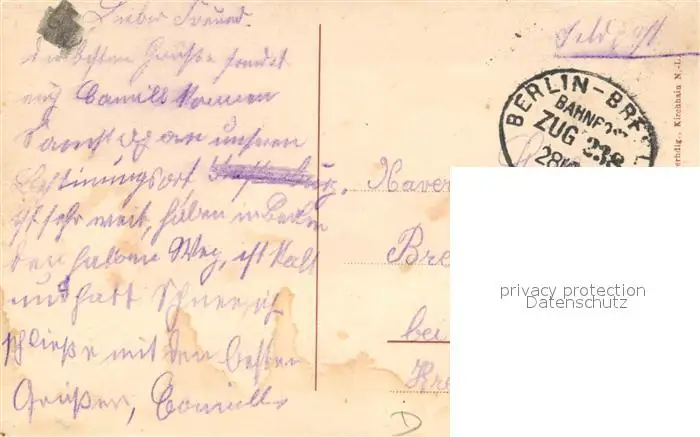 Lieber Freund.
die besten Grüße sendet
euch Camill kommen
Samstag an unseren
Bestimmungsort,
ist sehr weit, haben in Berlin
den halben Weg, ist kalt
und hatt Schnee, ich
schließe mit den besten
Grüßen, Camill
Feldpost
BERLIN-BRE
BAHNPOST
ZUG 238
28
Kirchhain N.-L.
Xaver
Bre
bei
Kre
D
privacy protection
Datenschutz